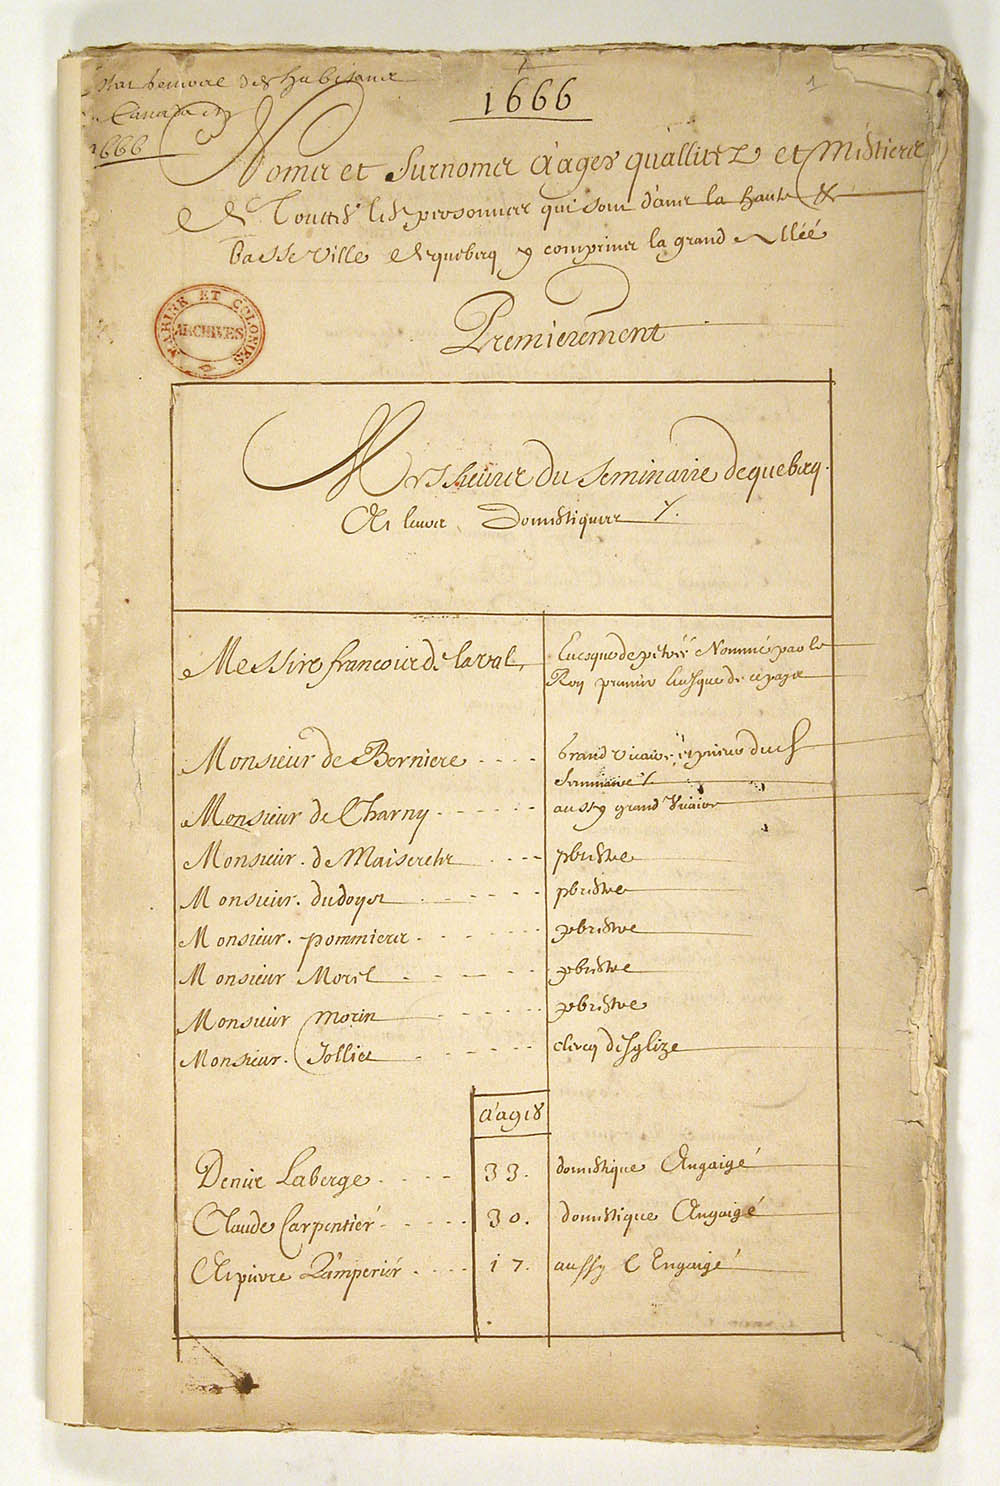 1666
1
Canada
1666
Noms et Surnoms aages quallitez et Mestiers
de Touttes les personnes qui sont dans la haute &
basse ville de quebecq y comprins la grand allée
MARINE ET COLONIES
ARCHIVES
Premierement
Messieurs du Seminaire de quebecq.
Et leurs Domestiques
Messire francois de laval, Evesque de petrée Nommé par le
Roy premier Evesque de ce pays
Monsieur de Berniere Grand vicaire
Seminaire
Monsieur de Charny aussy grand Vicaire
Monsieur. de Maiserets pbestre
Monsieur. dudoyt pbrestre
Monsieur. pommiers pbrestre
Monsieur Morel pbrestre
Monsieur morin pbrestre
Monsieur. Jolliet clercq desglize
aages
Denis Laberge 33. domestique Angaigé
Claude Carpentier 30. domestique Angaigé
Et pierre 17. aussy Engaigé